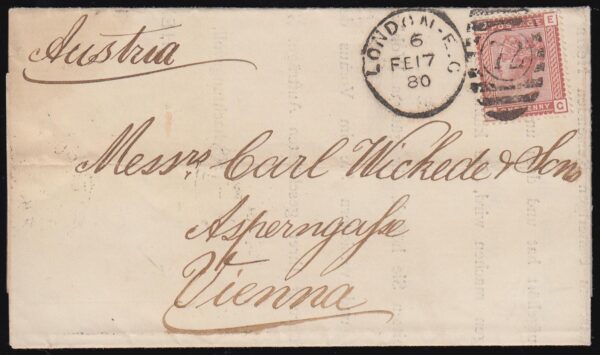 Austria
LONDON-E.C
6
FE 17
80
72
E
PENNY
G
Messrs. Carl Wickede & Sons
Asperngasse
Vienna